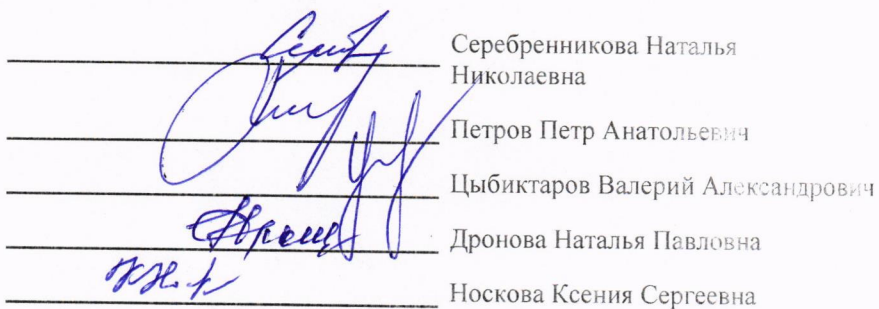 Серебренникова Наталья
Николаевна
Петров Петр Анатольевич
Цыбиктаров Валерий Александрович
Дронова Наталья Павловна
Носкова Ксения Сергеевна